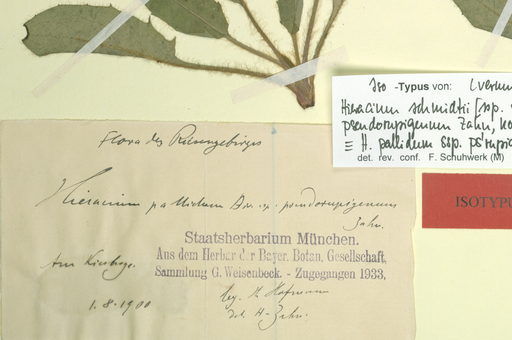 Iso -Typus von: (verum
Hieracium schmidtii ssp.
pseudorupigenum Zahn,
≡ H. pallidum ssp. ps'rupig
det. rev. conf. F. Schuhwerk (M)
ISOTYPU
Flora des Riesengebirges
Hieracium pallidum ssp. pseudorupigenum
Zahn.
Staatsherbarium München.
Aus dem Herbar der Bayer. Botan. Gesellschaft,
Sammlung G. Weisenbeck. - Zugegangen 1933,
Am
1.8.1900
leg. Hofmann
det. H. Zahn.